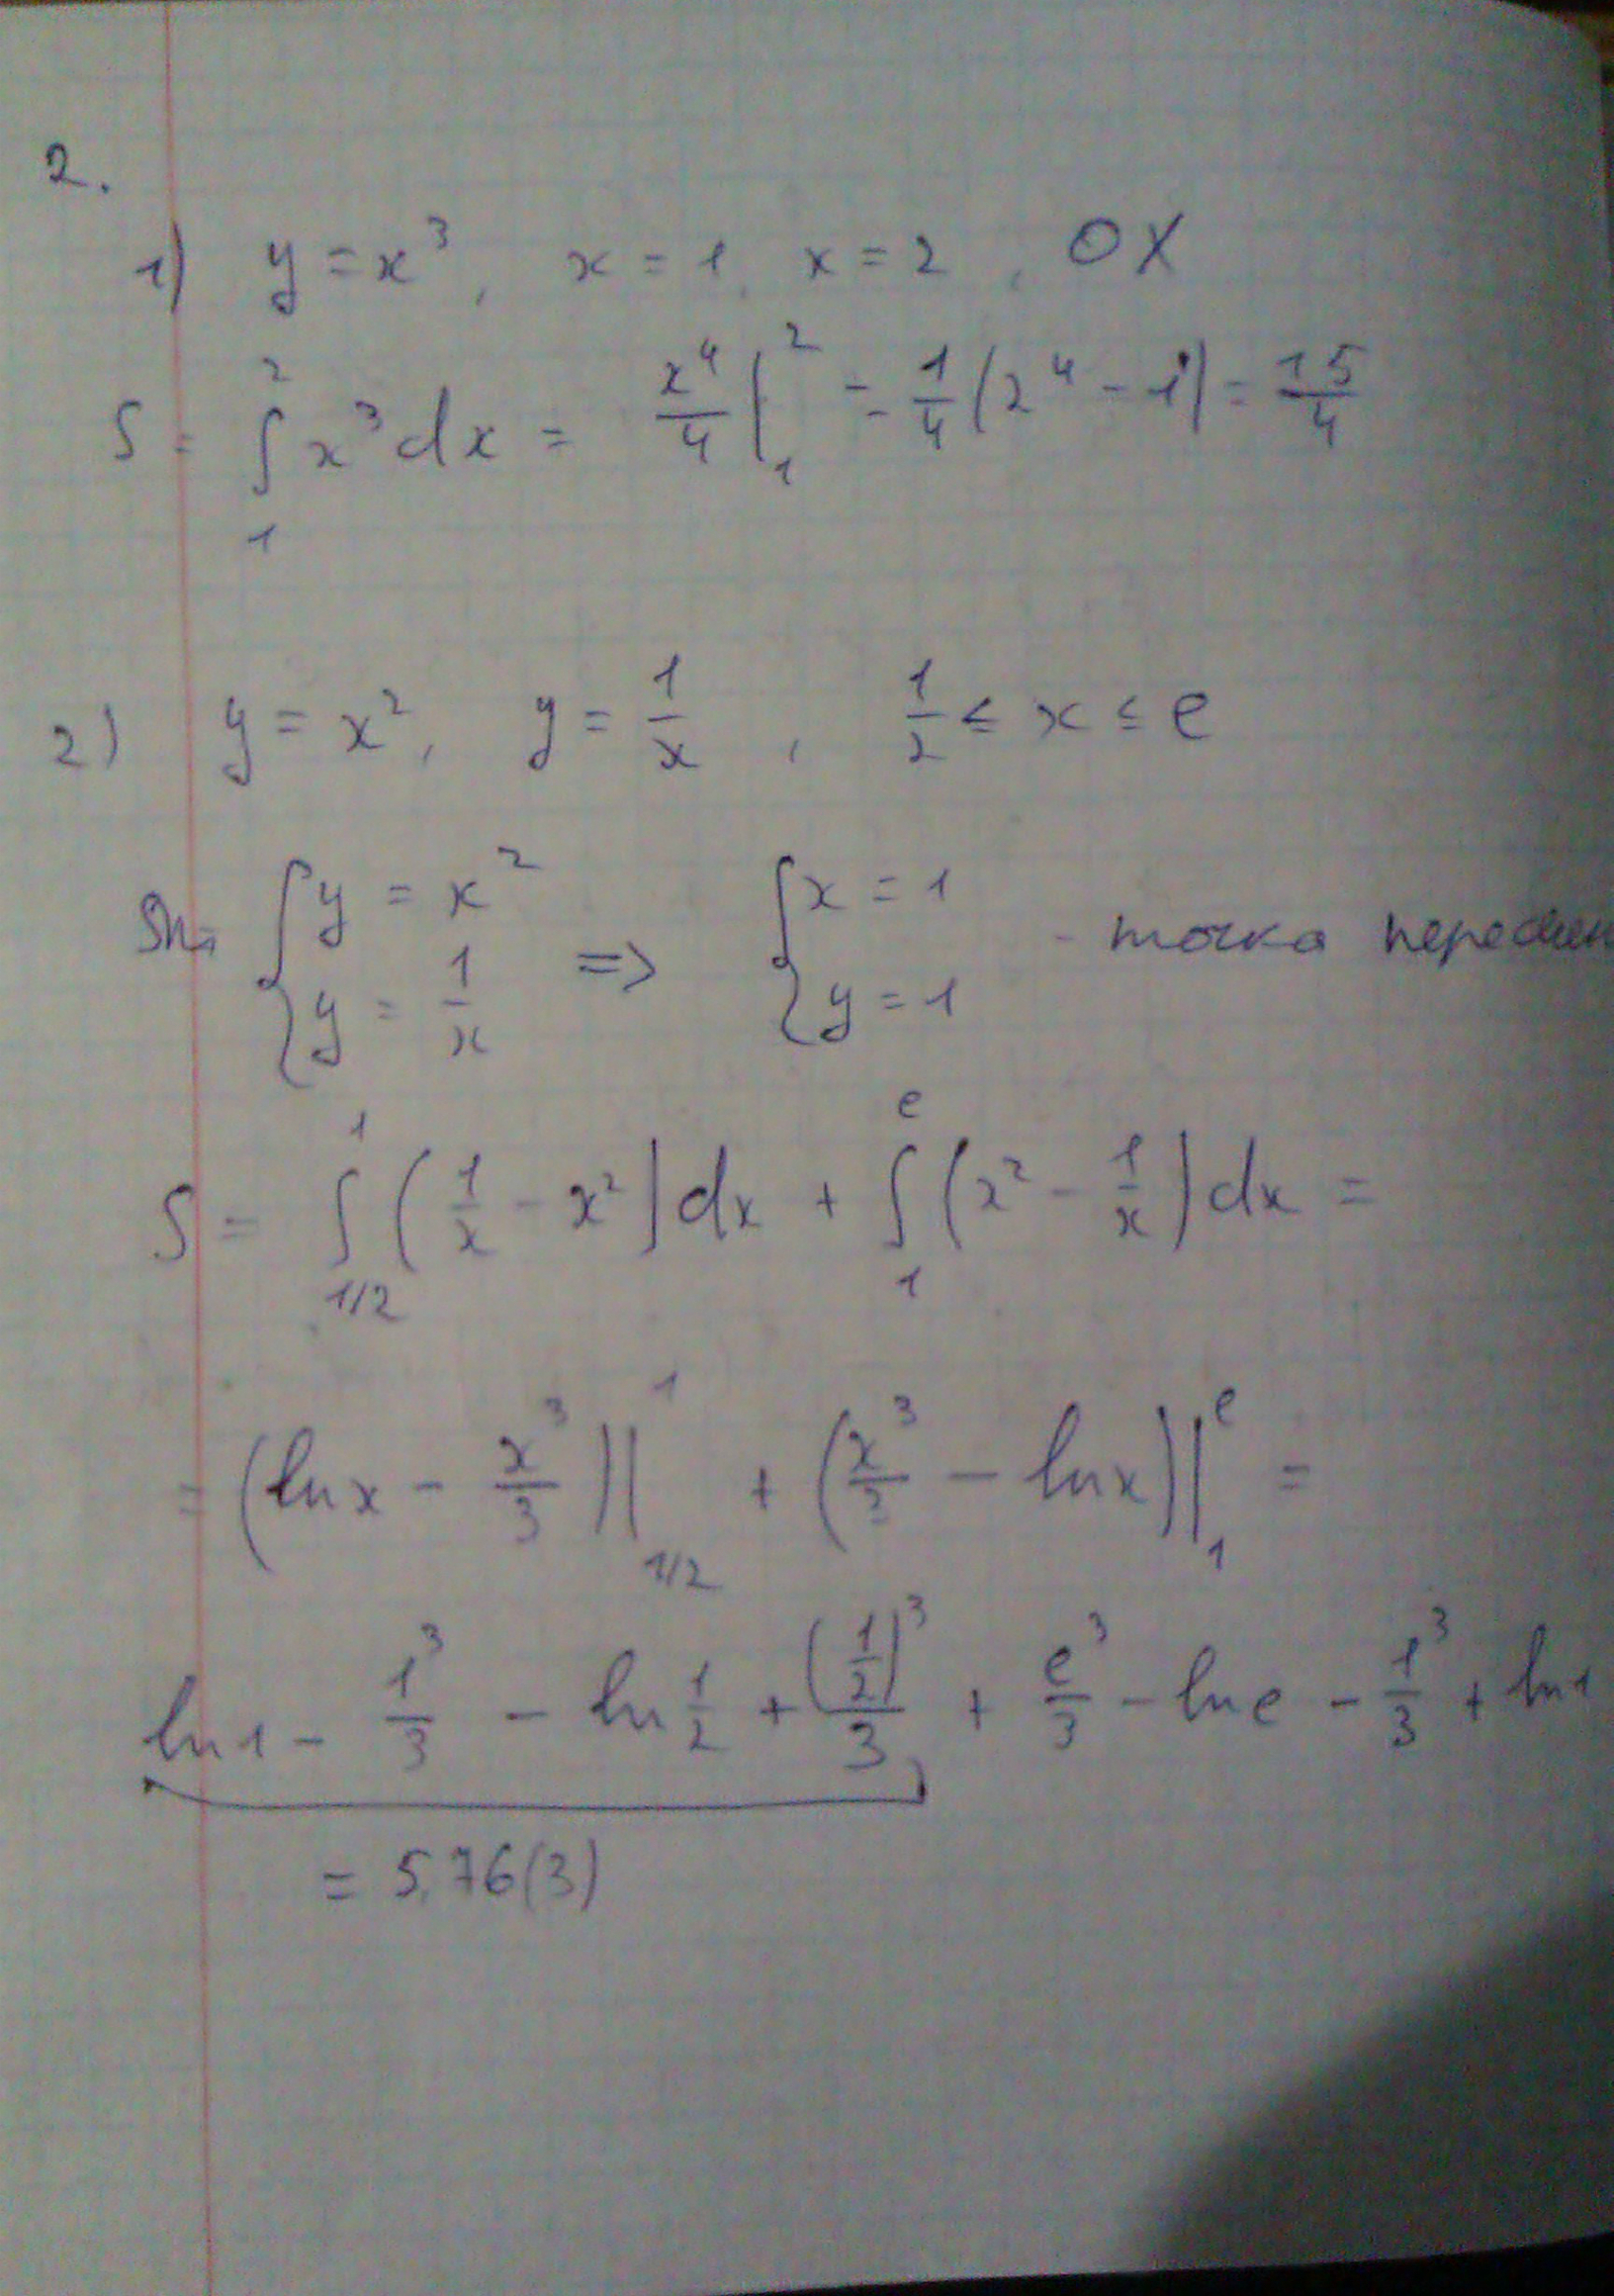 2.
1) y = x³, x = 1, x = 2, OX
S = ∫₁² x³dx = x⁴/4 |₁² = 1/4 (2⁴ - 1) = 15/4
2) y = x², y = 1/x, 1/2 ≤ x ≤ e
{ y = x² y = 1/x => { x = 1 y = 1 - точка
S = ∫_{1/2}^{1} (1/x - x²) dx + ∫_{1}^{e} (x² - 1/x) dx =
= (ln x - x³/3) |_{1/2}^{1} + (x³/3 - ln x) |_{1}^{e} =
ln 1 - 1³/3 - ln 1/2 + (1/2)³/3 + e³/3 - ln e - 1³/3 + ln 1
= 5,76(3)